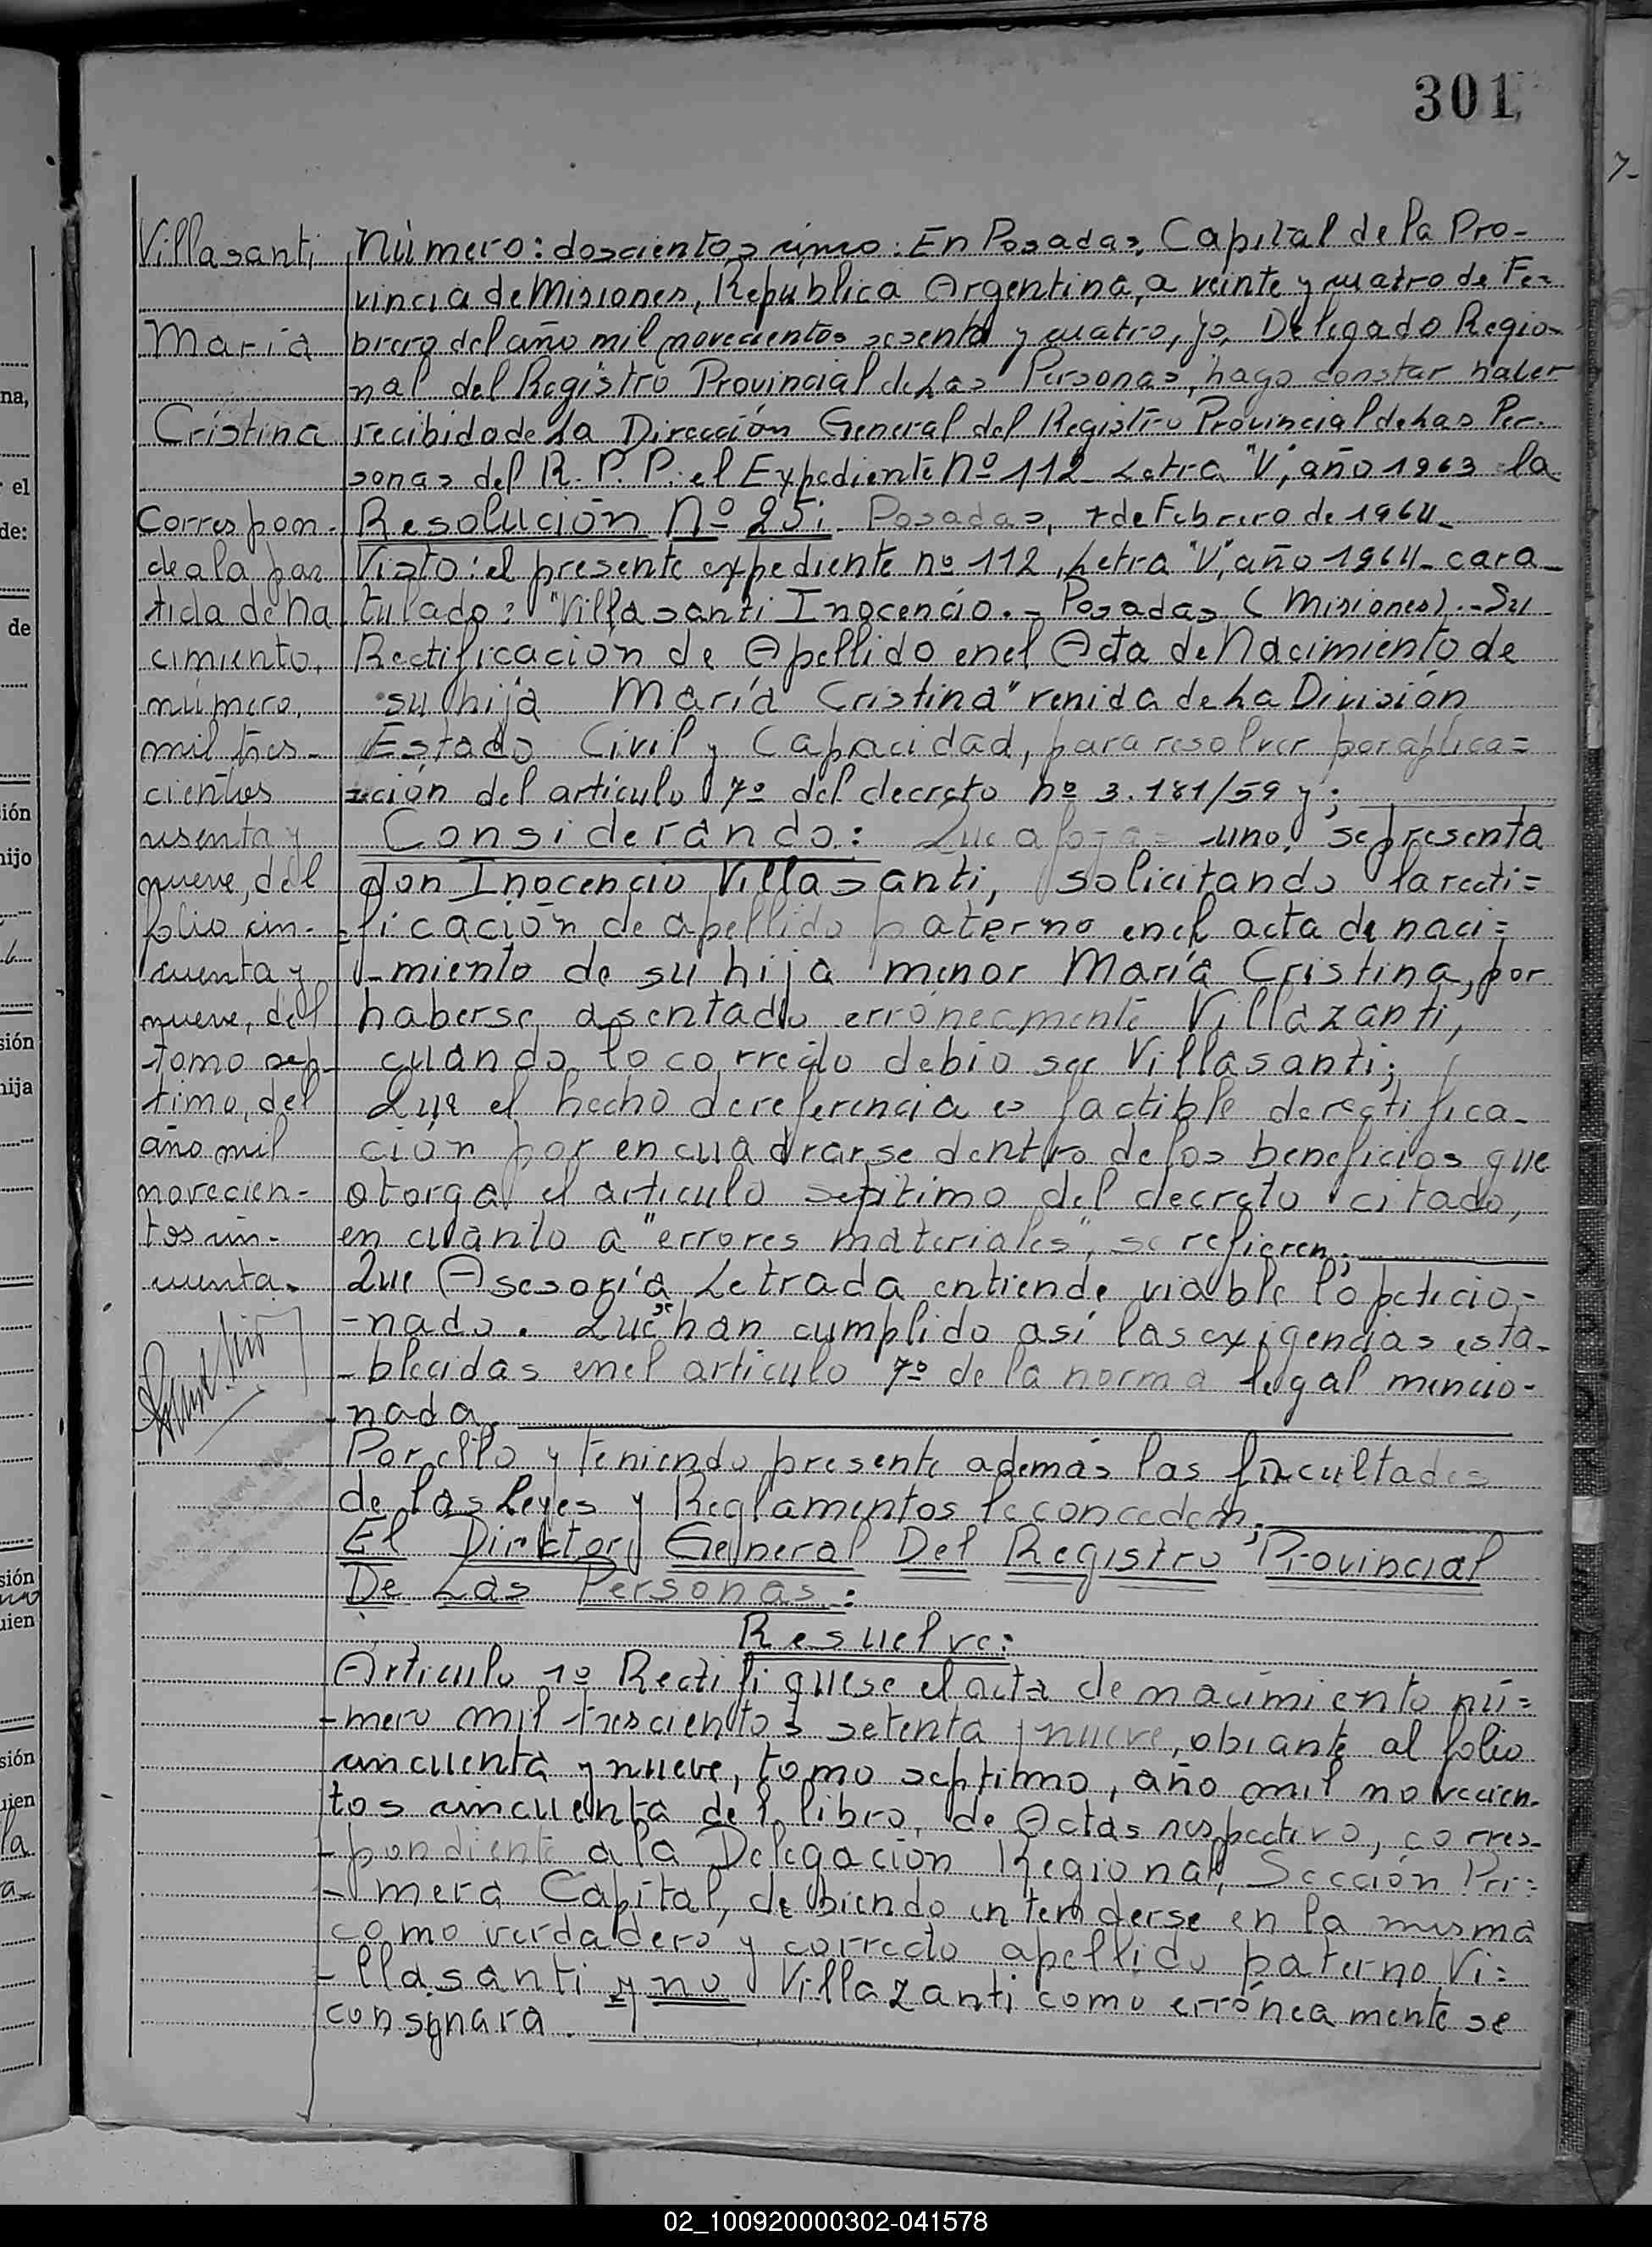 301
7-
Villasanti
María
Cristina
Correspon-
de a la par
tida de na
cimiento,
número,
mil tres-
cientos
setenta y
nueve, del
folio cin-
cuenta y
nueve, del
tomo sép-
timo, del
año mil
novecien-
tos cin-
cuenta.
Número: doscientos cinco: En Posadas, Capital de la Pro-
vincia de Misiones, República Argentina, a veinte y cuatro de Fe-
brero del año mil novecientos sesenta y cuatro, yo, Delegado Regio-
nal del Registro Provincial de Las Personas, hago constar haber
recibido de La Dirección General del Registro Provincial de Las Per-
sonas del R. P. P. el Expediente Nº 112 Letra "V", año 1963 la
Resolución Nº 25; Posadas, 7 de Febrero de 1964-
Visto: el presente expediente nº 112, Letra "V", año 1964- cara-
tulado: "Villasanti Inocencio.- Posadas (Misiones).- Su
Rectificación de Apellido en el Acta de Nacimiento de
su hija María Cristina" venida de La División
Estado Civil y Capacidad, para resolver por aplica=
ción del artículo 7º del decreto nº 3.181/59 y;
Considerando: Que a fojas uno, se presenta
don Inocencio Villasanti, solicitando la recti=
=ficación de apellido paterno en el acta de naci=
-miento de su hija menor María Cristina, por
haberse asentado erróneamente Villazanti,
cuando lo correcto debió ser Villasanti;
Que el hecho de referencia es factible de rectifica-
ción por encuadrarse dentro de los beneficios que
otorga el artículo septimo del decreto citado,
en cuanto a "errores materiales", se refieren;
Que Asesoría Letrada entiende viable lo peticio-
-nado. Que se han cumplido así las exigencias esta-
-blecidas en el artículo 7º de la norma legal mencio-
-nada.
Por ello y teniendo presente además las facultades
de las Leyes y Reglamentos le conceden;
El Director General Del Registro Provincial
De Las Personas:
Resuelve:
Artículo 1º Rectifiquese el acta de nacimiento nú=
-mero mil trescientos setenta y nueve, obrante al folio
cincuenta y nueve, tomo septimo, año mil novecien-
tos cincuenta del libro de Actas respectivo, corres-
-pondiente a la Delegación Regional, Sección Pri=
-mera Capital, debiendo entenderse en la misma
como verdadero y correcto apellido paterno Vi=
-llasanti y no Villazanti como erróneamente se
consignara.
na,
el
de:
de
sión
hijo
sión
hija
sión
uien
sión
uien
la
a
02_100920000302-041578